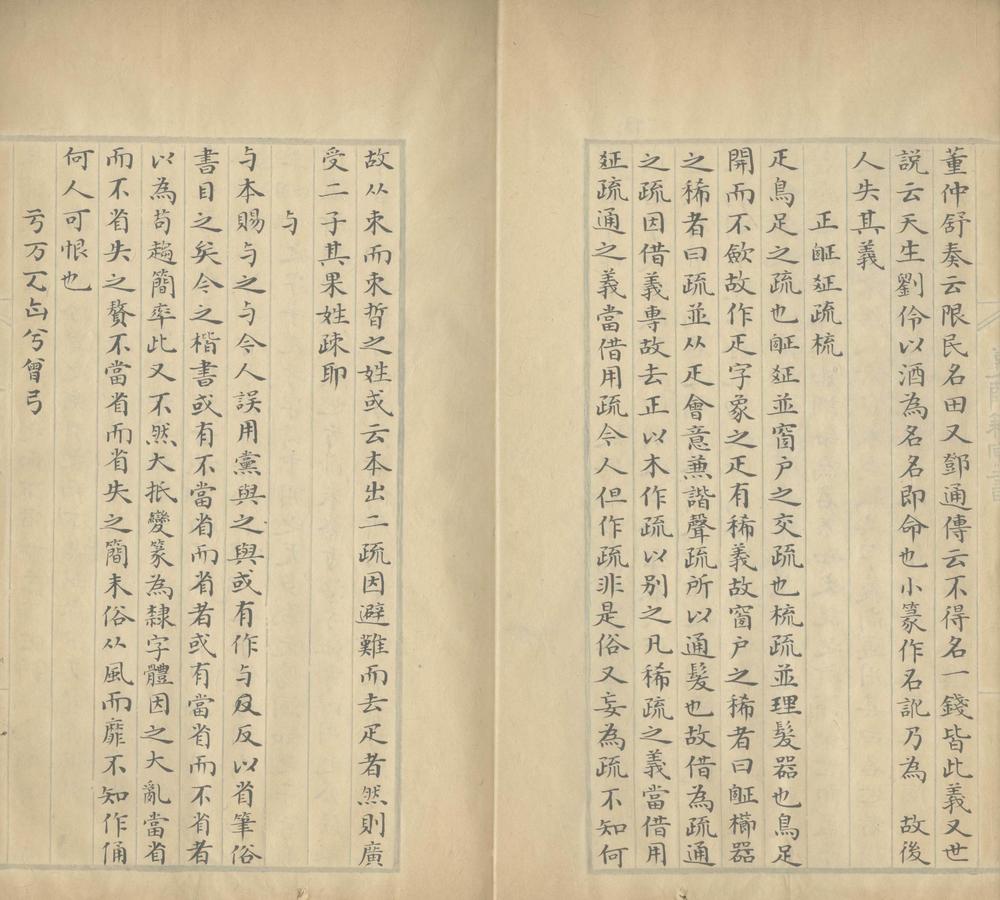 董仲舒奏云限民名田又鄧通傳云不得名一錢皆此義又世
説云天生劉伶以酒為名名即命也小篆作名訛乃為　故後
人失其義
疋䟽延疏梳
疋鳥足之疏也䟽延並窗户之交疏也梳疏並理髮器也鳥足
開而不斂故作疋字象之疋有稀義故窗户之稀者曰䟽櫛器
之稀者曰疏並从疋會意兼諧聲疏所以通髮也故借為疏通
之疏因借義專故去正以木作疏以别之凡稀疏之義當借用
延疏通之義當借用疏今人但作疏非是俗又妄為疏不知何
故从束而束晳之姓或云本出二疏因避難而去疋者然則廣
受二子其果姓疎耶
与
与本賜与之与今人誤用黨與之與或有作与㕛反以省筆俗
書目之矣今之楷書或有不當省而省者或有當省而不省者
以為苟趨簡率此又不然大抵變篆為隸字體因之大亂當省
而不省失之贅不當省而省失之簡末俗从風而靡不知作俑
何人可恨也
亏万兮曾弓